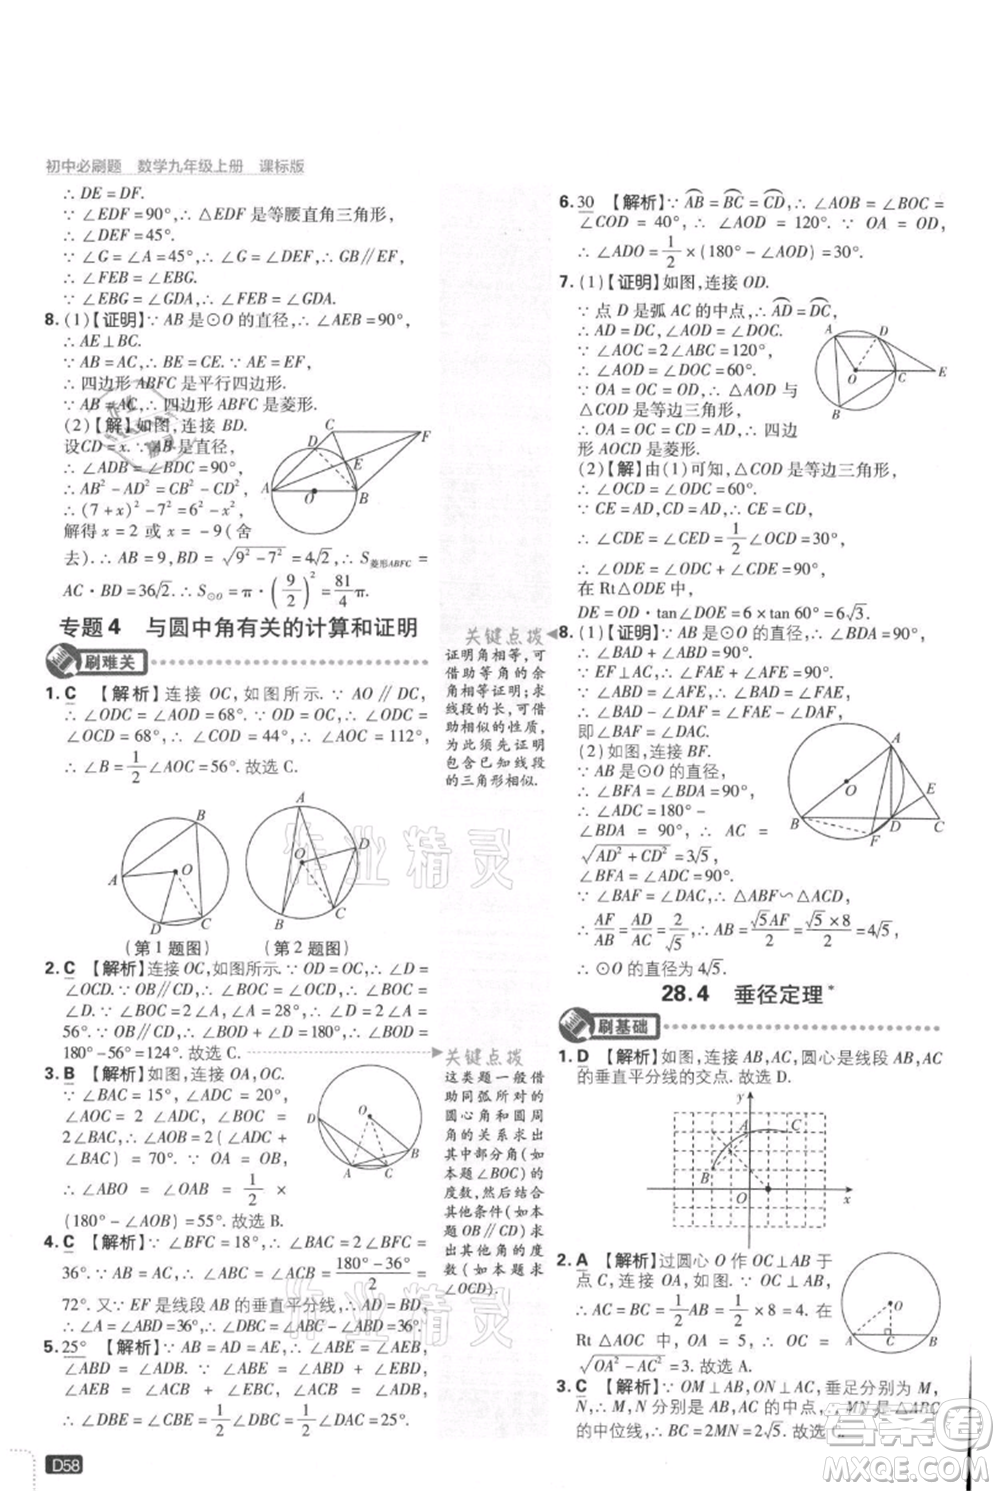 初中必刷题 数学九年级上册 课标版
∴ DE = DF.
∵ ∠EDF = 90°,∴ △EDF 是等腰直角三角形,
∴ ∠DEF = 45°.
∵ ∠G = ∠A = 45°,∴ ∠G = ∠DEF,∴ GB∥EF,
∴ ∠AEF = ∠EBG.
∵ ∠EBG = ∠GDA,∴ ∠AEF = ∠GDA.
8. (1)【证明】∵ AB 是⊙O 的直径,∴ ∠AEB = 90°,
∴ AE⊥BC.
∵ AB = AC,∴ BE = CE. ∵ AE = EF,
∴ 四边形 ABFC 是平行四边形.
∵ AB = AC,∴ 四边形 ABFC 是菱形.
(2)【解】如图,连接 BD.
设CD = x. ∵ AB 是直径,
∴ ∠ADB = ∠BDC = 90°,
∴ AB² − AD² = CB² − CD²,
∴ (7 + x)² − 7² = 6² − x²,
解得 x = 2 或 x = −9(舍
去). ∴ AB = 9,BD = √(9² − 7²) = 4√2,∴ S菱形ABFC =
AC·BD = 36√2. ∴ S⊙O = π·(9/2)² = 81/4 π.
C F D E A O B
专题4 与圆中角有关的计算和证明
刷难关
1. C 【解析】连接 OC,如图所示. ∵ AO∥DC,
∴ ∠ODC = ∠AOD = 68°. ∵ OD = OC,∴ ∠ODC =
∠OCD = 68°,∴ ∠COD = 44°,∴ ∠AOC = 112°,
∴ ∠B = 1/2 ∠AOC = 56°. 故选 C.
B A O D C
A D O B C
(第 1 题图) (第 2 题图)
2. C 【解析】连接 OC,如图所示. ∵ OD∥BC,∴ ∠D =
∠OCD. ∵ OD = OC,∴ ∠D = ∠OCD,∴ ∠OCB =
2∠D. ∵ ∠D = 28°,∴ ∠OCB = 2 × 28° = 56°.
∵ OC = OB,∴ ∠B = ∠OCB = 56°. ∴ ∠BOD =
180° − 56° = 124°. 故选 C.
3. B 【解析】连接 OA,OC.
∵ ∠BAC = 15°,∠ADC =
20°,∴ ∠AOC = 2∠ADC,∠BOC =
2∠BAC,∴ ∠AOB = 2(∠ADC +
∠BAC) = 70°. ∵ OA = OB,
∴ ∠ABO = ∠OAB = 1/2 ×
(180° − ∠AOB) = 55°. 故选 B.
O D B A C
4. C 【解析】∵ ∠BFC = 18°,∴ ∠BAC = 2∠BFC =
36°. ∵ AB = AC,∴ ∠ABC = ∠ACB = (180° − 36°)/2 =
72°. 又∵ EF 是线段 AB 的垂直平分线,∴ AD = BD,
∴ ∠A = ∠ABD = 36°,
5. 25° 【解析】∵ AB = AD = AE,∴ ∠ABE = ∠AEB,
∠ABD = ∠ADB,
D58
关键点拨
证明角相等,可
借助等角的余
角相等证明;求
线段的长,可借
助相似的性质,
为此须先证明
包含已知线段
的三角形相似.
关键点拨
这类题一般借
助同弧所对的
圆心角和圆周
角的关系求出
其中部分角(如
本题∠BOC)的
度数,然后结合
其他条件(如本
题 OD∥CD)求
出其他角的度
数(如本题求
∠OCD).
6. 30 【解析】∵ AB = BC = CD,∴ ∠AOB = ∠BOC =
∠COD = 40°,∴ ∠AOD = 120°. ∵ OA = OD,
∴ ∠ADO = 1/2 × (180° − ∠AOD) = 30°.
7. (1)【证明】如图,连接 OD.
∵ 点 D 是弧 AC 的中点,∴ AD = DC,
∴ AD = DC,∠AOD = ∠DOC.
∵ ∠AOC = 2∠ABC = 120°,
∴ ∠AOD = ∠COD = 60°.
∵ OA = OC = OD,∴ △AOD 与
△COD 是等边三角形,
∴ OA = AD = CD = OC,∴ 四边
形 AOCD 是菱形.
A D O C E B
(2)【解】由(1)可知,△COD 是等边三角形,
∴ ∠OCD = ∠ODC = 60°.
∵ CE = AD,CD = AD,∴ CE = CD,
∴ ∠CDE = ∠CED = 1/2 ∠OCD = 30°,
∴ ∠ODE = ∠ODC + ∠CDE = 90°.
在 Rt△ODE 中,
DE = OD·tan∠DOE = 6×tan 60° = 6√3.
8. (1)【证明】∵ AB 是⊙O 的直径,∴ ∠BDA = 90°,
∴ ∠BAD + ∠ABD = 90°.
∵ EF = EA,∴ ∠FAE = ∠AFE.
∵ ∠ABD = ∠AFE,
∴ ∠BAD − ∠DAF = ∠FAE − ∠DAF,
即∠BAF = ∠DAC.
(2)如图,连接 BF.
∵ AB 是⊙O 的直径,
∴ ∠BFA = ∠BDA = 90°,
∴ ∠ADC = 180° −
∠BDA = 90°. ∴ AC =
√(AD² + CD²) = 4√5.
∵ ∠BAF = ∠DAC,∠BFA =
∠ADC = 90°,∴ △ABF∽△ACD,
∴ AF/AB = AD/AC = 2/√5,∴ AB = √5AF/2 = (√5 × 8)/2 = 4√5,
∴ ⊙O 的直径为 4√5.
A O E B D C F
28.4 垂径定理*
刷基础
1. D 【解析】如图,连接 AB,AC,圆心是线段 AB,AC
的垂直平分线的交点. 故选 D.
y A C B O x
2. A 【解析】过圆心 O 作 OC⊥AB 于
点 C,连接 OA,如图.
∴ AC = 1/2 AB = 1/2 × 8 = 4. 在
Rt △OAC 中,OA = 5,∴ OC =
√(OA² − AC²) = 3. 故选 A.
O A C B
3. C 【解析】∵ OM⊥AB,ON⊥AC,垂足分别为 M,
N,∴ M,N 是 AB,AC 的中点,∴ MN 是△ABC
的中位线,∴ BC = 2MN = 2√5. 故选 C.
作业精灵
作业精灵
答案圈
MXQE.COM